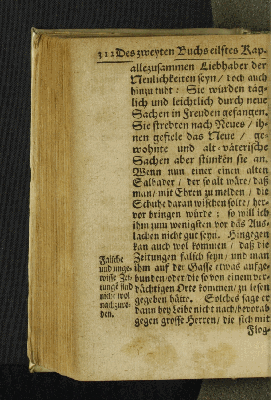 312 Des zweyten Buchs eilftes Kap.
allezusammen Liebhaber der
Neulichkeiten seyn / doch auch
hinzu tuht: Sie würden täg-
lich und leichtlich durch neue
Sachen in Freuden gefangen.
Sie strebten nach Neues / ih-
nen gefiele das Neue / ge-
wohnte und alt-väterische
Sachen aber stünken sie an.
Wenn nun einer einen alten
Salbader / der so alt wäre / daß
man / mit Ehren zu melden / die
Schuhe daran wischen solte / her-
vor bringen würde; so will ich
ihm zum wenigsten vor das Aus-
lachen nicht gut seyn. Hingegen
kan auch wol kommen / daß die
Zeitungen falsch seyn / und man
ihm auf der Gasse etwas aufge-
bunden / oder die so von einem ver-
dächtigen Orte kommen / zu lesen
gegeben hätte. Solches sage er
dann bey Leibe nicht nach / bevorab
gegen grosse Herren / die sich mit
Flog-
Falsche
und unge-
wisse Zei-
tunge sind
nicht wol
nachzure-
den.